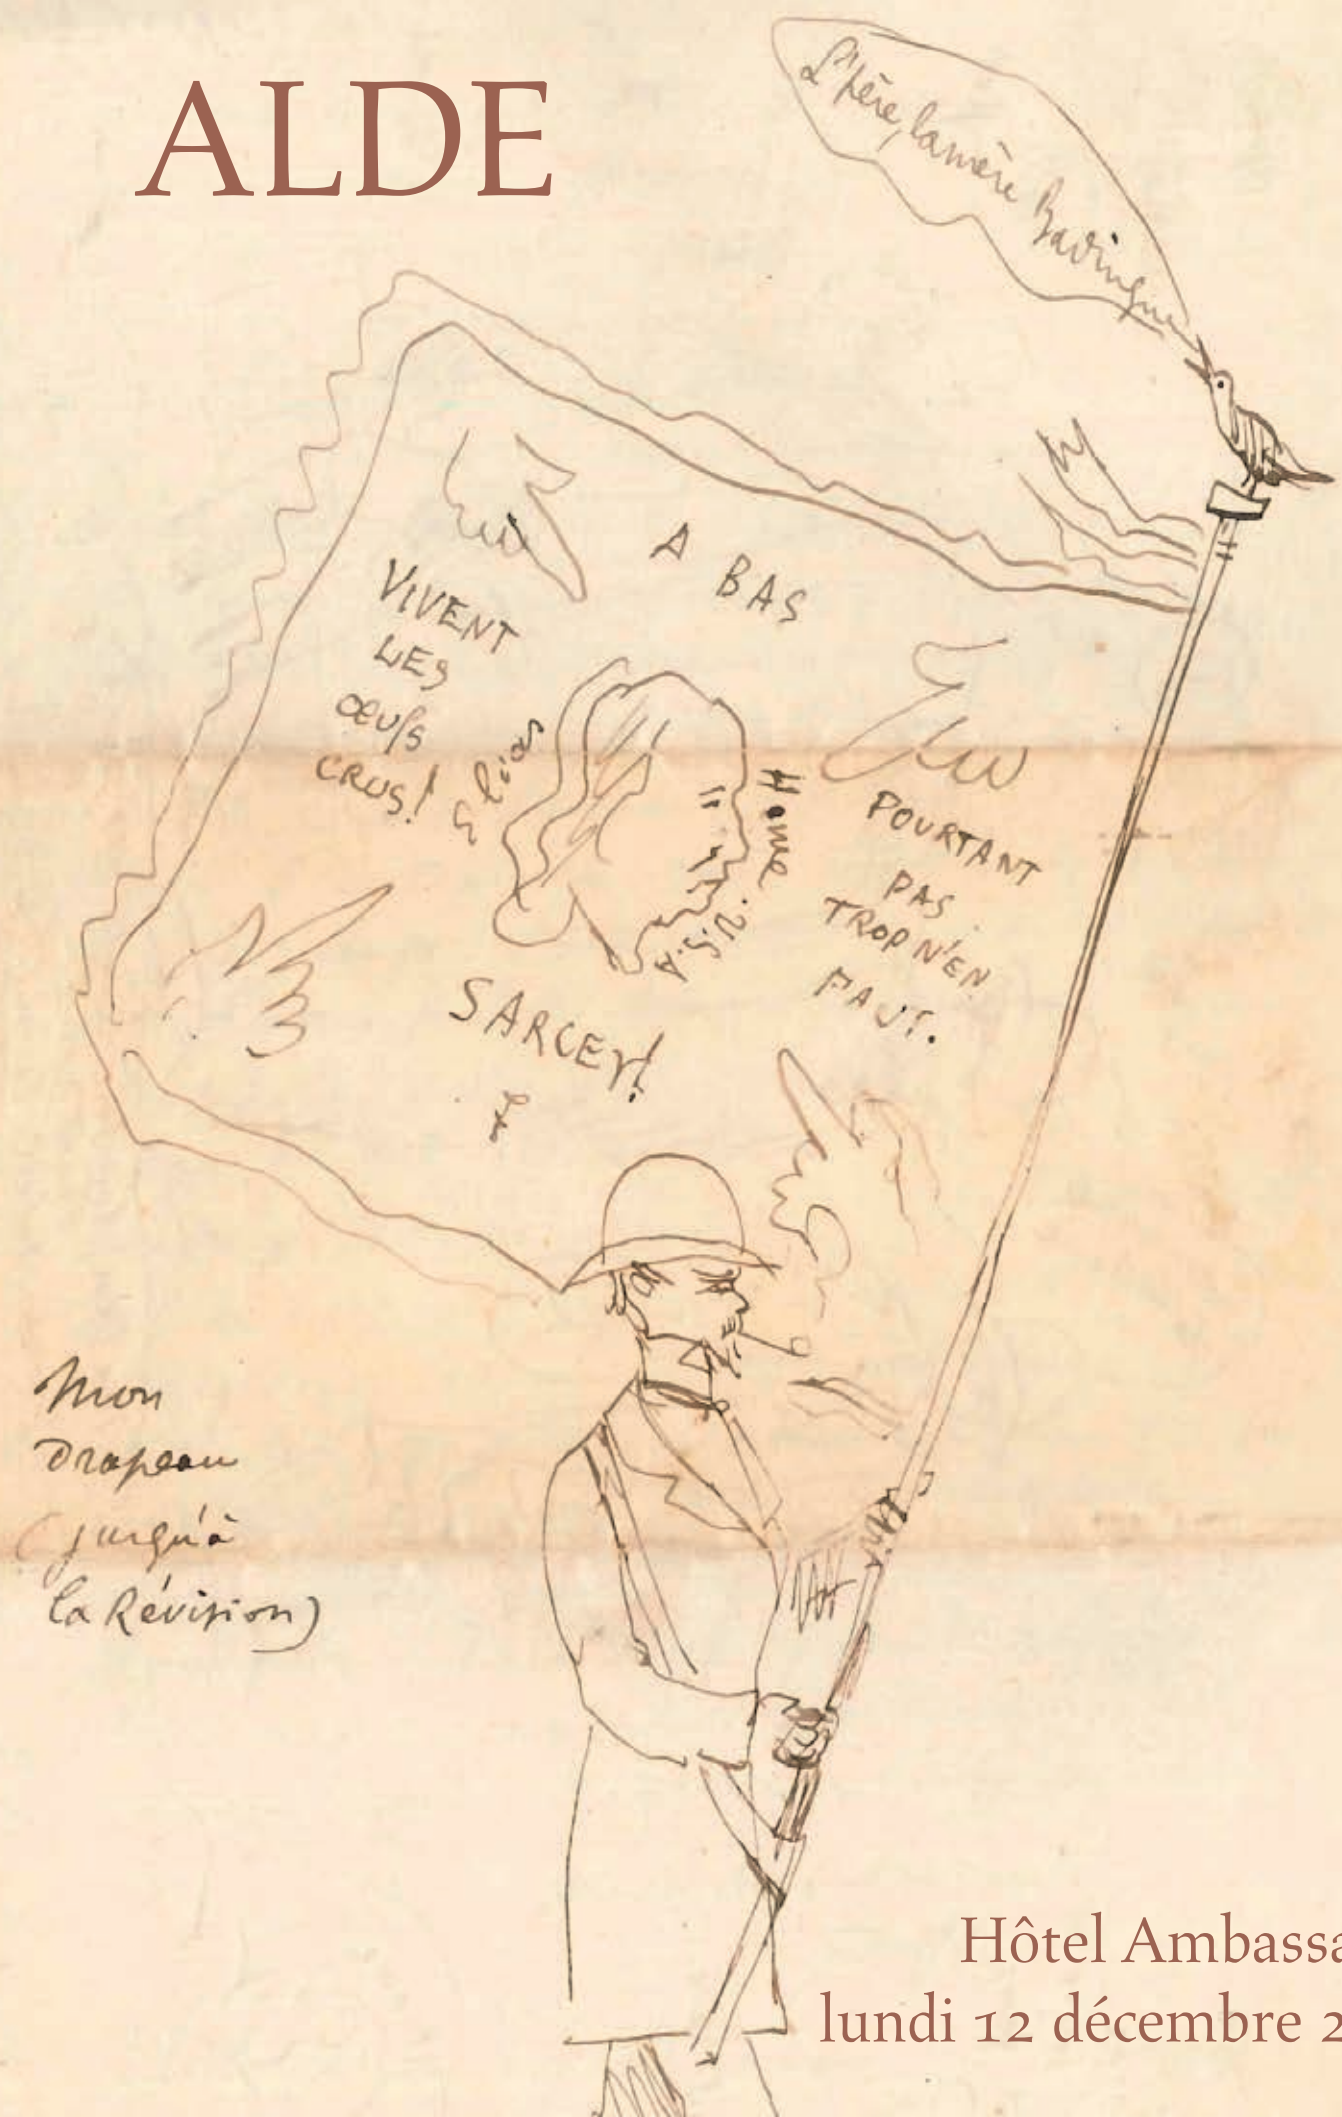 ALDE
L'père, la mère Badingue
A BAS
VIVENT
LES
ŒUFS
CRUS!
Elias
Howe
U.S.A
POURTANT
PAS
TROP N'EN
FAUT.
SARCEY!
Mon
Drapeau
(jusqu'à
la Révision)
Hôtel Ambassa
lundi 12 décembre 2